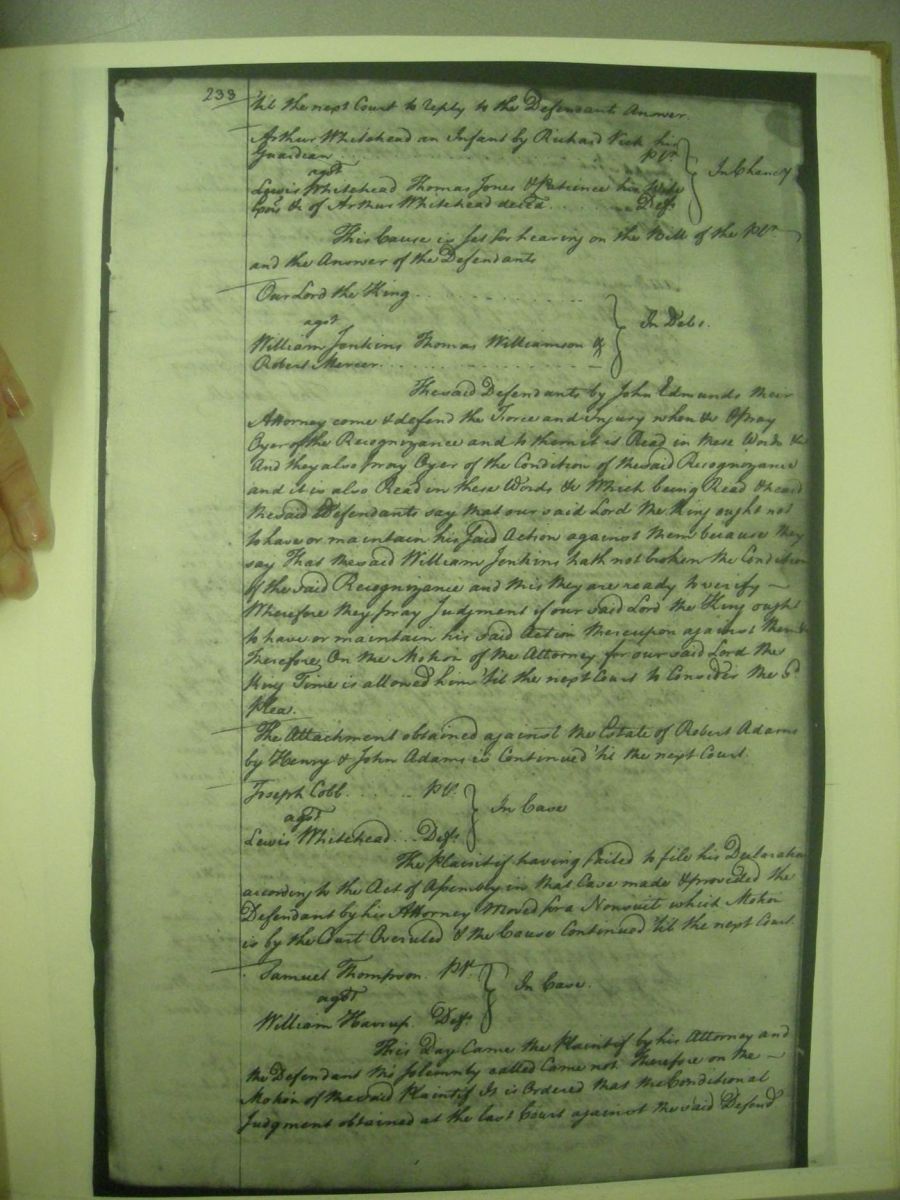 233
'til the next Court to reply to the Defendants Answer.
Arthur Whitehead an Infant by Richard Vick his
Guardian . . . . . . . . . . . Plt.
agst.
In Chancy
Lewis Whitehead Thomas Jones & Patience his Wife
Exors. &c of Arthur Whitehead deced. . . . . . Defts
This Cause is set for hearing on the Bill of the Plt.
and the Answer of the Defendants
Our Lord the King . . . . . . . . . . . .
agst
In Debt.
William Jenkins Thomas Williamson &
Robert Mercer . . . . . . . . . . . .
The said Defendants by John Edmunds their
Attorney come & defend the Force and injury when &c & pray
Oyer of the Recognizance and to them it is Read in these Words &c
And they also pray Oyer of the Condition of the said Recognizance
and it is also Read in these Words &c Which being Read & heard
the said Defendants say that our said Lord the King ought not
to have or maintain his said Action against them because they
say That the said William Jenkins hath not broken the Condition
of the said Recognizance and this they are ready to verify —
Wherefore they pray Judgment if our said Lord the King ought
to have or maintain his said Action thereupon against them &c
Therefore On the Motion of the Attorney for our said Lord the
King Time is allowed him 'til the next Court to Consider the sd.
Plea.
The Attachment obtained against the Estate of Robert Adams
by Henry & John Adams is Continued 'til the next Court.
Joseph Cobb . . . . . . Plt.
agst.
In Case
Lewis Whitehead . . . Deft
The Plaintif having failed to file his Declaration
according to the Act of Assembly in that Case made & provided the
Defendant by his Attorney Moved for a Nonsuit which Motion
is by the Court Overuled & the Cause Continued 'til the next Court.
Samuel Thompson. Plt.
agst
In Case.
William Harrup. Deft.
This Day Came the Plaintif by his Attorney and
the Defendant tho Solemnly called Came not Therefore on the —
Motion of the said Plaintif It is Ordered that the Conditional
Judgment obtained at the last Court against the said Defend